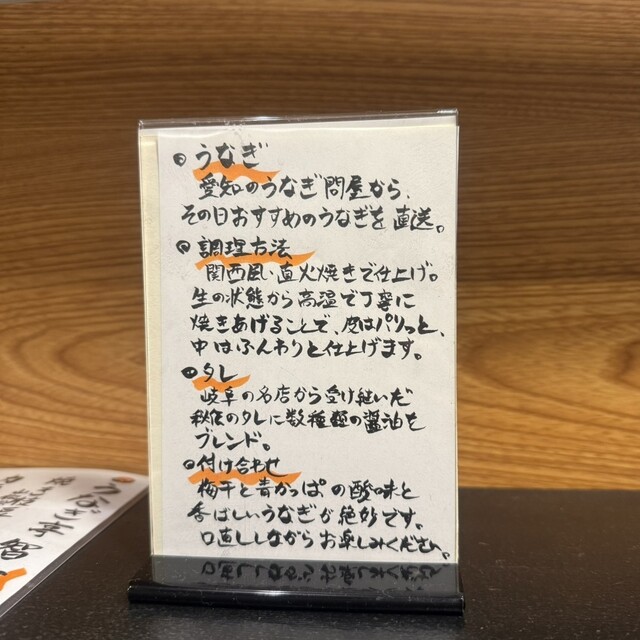 うなぎ
愛知のうなぎ問屋から、
その日おすすめのうなぎを直送。
調理方法
関西風・直火焼きで仕上げ。
生の状態から高温で丁寧に
焼きあげることで、皮はパリッと、
中はふんわりと仕上げます。
タレ
岐阜の名店から受け継いだ
秘伝のタレに数種類の醤油を
ブレンド。
付け合わせ
梅干と青かっぱの酸味と
香ばしいうなぎが絶妙です。
口直ししながらお楽しみください。
うなぎ